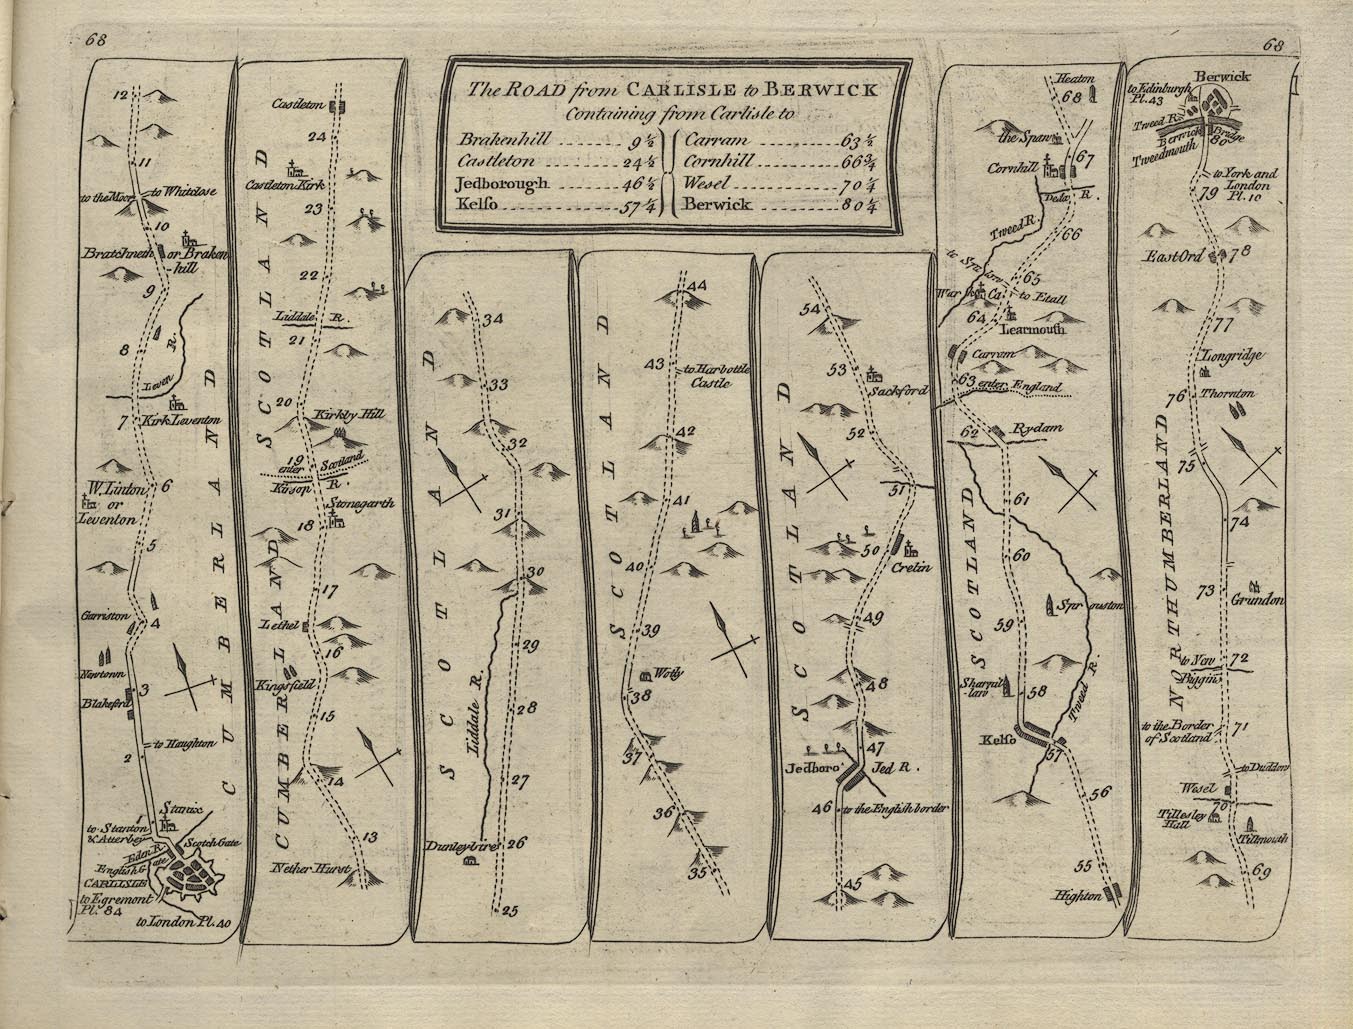 68
68
The ROAD from CARLISLE to BERWICK
Containing from Carlisle to
Brakenhill ........ 9½
Castleton ........ 24½
Jedborough ........ 46½
Kelso ........ 57¼
Carram ........ 63½
Cornhill ........ 66¾
Wesel ........ 70¼
Berwick ........ 80¼
12
11
to the Moor
to Whitclose
10
Bratshneth
or Braken
-hill
9
8
Leven
R.
7
Kirk Leventon
W. Linton
or
Leventon
6
5
Garriston
4
Newtown
3
Blakeford
to Haughton
2
1
Stanix
to Stanton
& Atterbey
Scotch Gate
Eden R.
English Gate
CARLISLE
to Egremont
Pl. 84
to London Pl. 40
CUMBERLAND
Castleton
24
Castleton Kirk
23
22
Liddale R.
21
20
Kirkby Hill
19
enter Scotland
Kirsop R.
Stonegarth
18
17
Lethel
16
Kingsfield
15
14
13
Nether Hurst
SCOTLAND
CUMBERLAND
34
33
32
31
30
29
28
Liddale R.
27
Dunleybire
26
25
SCOTLAND
44
43
to Harbottle
Castle
42
41
40
39
Wolly
38
37
36
35
SCOTLAND
54
53
Sackford
52
51
50
Crelin
49
48
47
Jedboro'
Jed R.
46
to the English border
45
SCOTLAND
Heaton
68
the Spaw
67
Cornhill
R.
Tweed R.
66
65
to Etall
64
Learmouth
Carram
63
enter England
62
Rydam
61
60
Sprouston
59
58
Tweed R.
Kelso
57
56
55
Highton
SCOTLAND
Berwick
to Edinburgh
Pl. 43
Tweed R.
Berwick Bridge
80
Tweedmouth
to York and
London
Pl. 10
79
East Ord
78
77
Longridge
76
Thornton
75
74
73
Grundon
72
to New
Biggin
71
to the Border
of Scotland
to Duddow
Wesel
70
Tillesley
Hall
Tillmouth
69
NORTHUMBERLAND